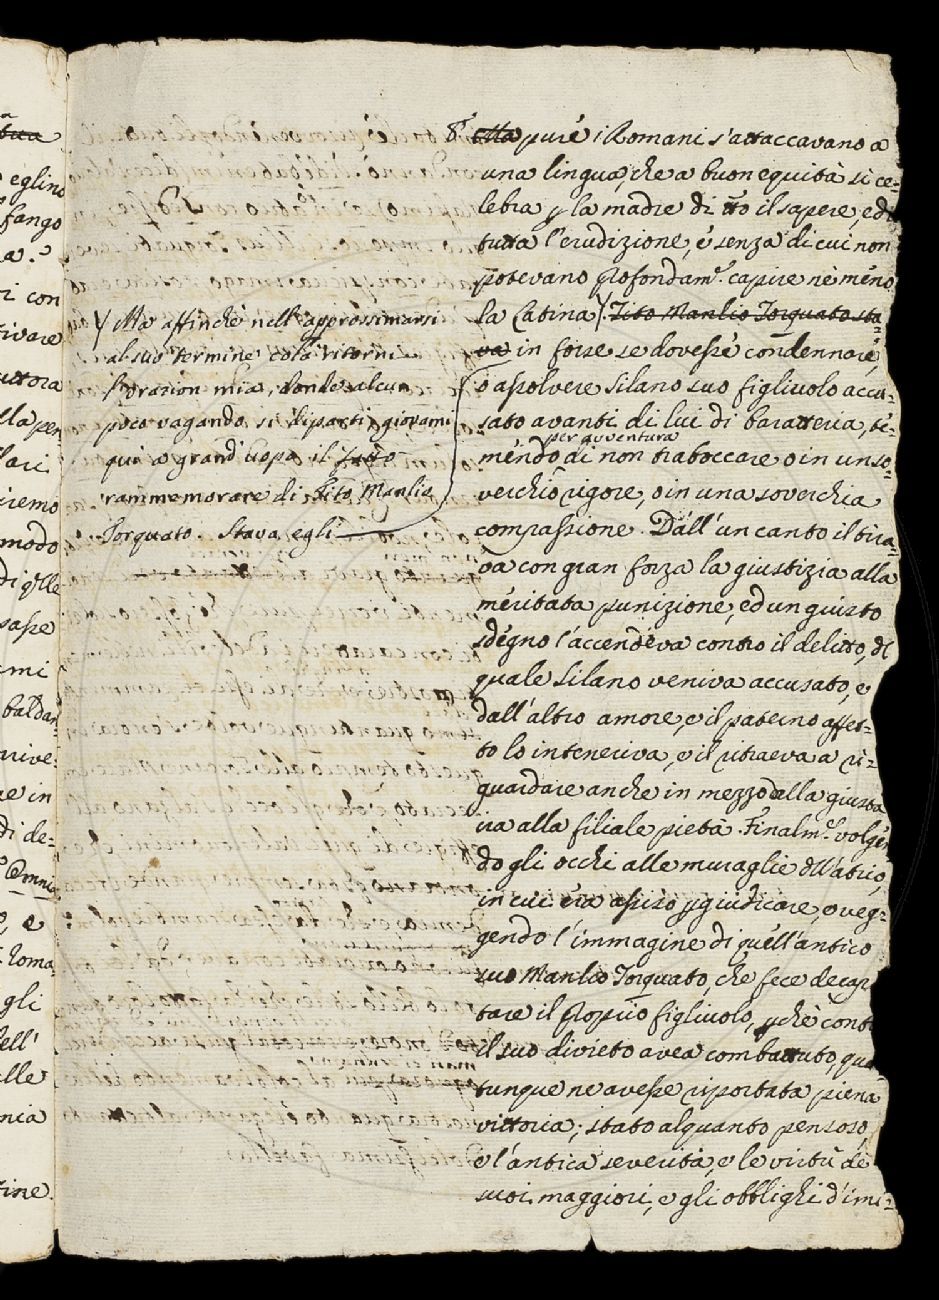 eglino
fango
ri con
tivare
uttora
lari
iremo
modo
di q̃lle
sasse
mi
baldan
rive-
re in
di de-
Omni
o, e
Roma-
gli
dell'
elle
nia
fine.
Ma affinchè nell'approssimarsi
al suo termine colà ritorni
l'orazion mia, donde alcun
poco vagando si dipartì, giovami
quì a grand'uopo il fatto
rammemorare di Tito Manlio
Torquato. Stava egli
8. Ma pure i Romani s'attaccavano a
una lingua, che a buon equità si ce-
lebra p la madre di tt̃o il sapere, e di
tutta l'erudizione, e senza di cui non
potevano profondam.e capire nè meno
la Latina. Tito Manlio Torquato sta-
va in forse se dovesse condennare,
o assolvere Silano suo figliuolo accu-
sato avanti di lui di baratteria, te-
per avventura
mendo di non traboccare o in un so-
verchio rigore, o in una soverchia
compassione. Dall'un canto il tira-
va con gran forza la giustizia alla
meritata punizione, ed un giusto
sdegno l'accendeva contro il delitto, di
quale Silano veniva accusato, e
dall'altro amore, e il paterno affet-
to lo inteneriva, e il ritraeva a ri-
guardare anche in mezzo alla giusta
ira alla filiale pietà. Finalm.e volgen
do gli occhi alle muraglie dell'atrio,
in cui era assiso p giudicare, o veg-
gendo l'immagine di quell'antico
suo Manlio Torquato, che fece decapi
tare il proprio figliuolo, pchè cont
il suo divieto avea combattuto, qua
tunque ne avesse riportata piena
vittoria; stato alquanto pensoso,
e l'antica severità, e le virtù de
suoi maggiori, e gli obblighi d'imi-